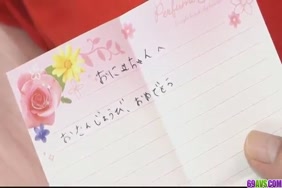 おにいちゃんへ
おたんじょうび、おめでとう
69AVS.COM